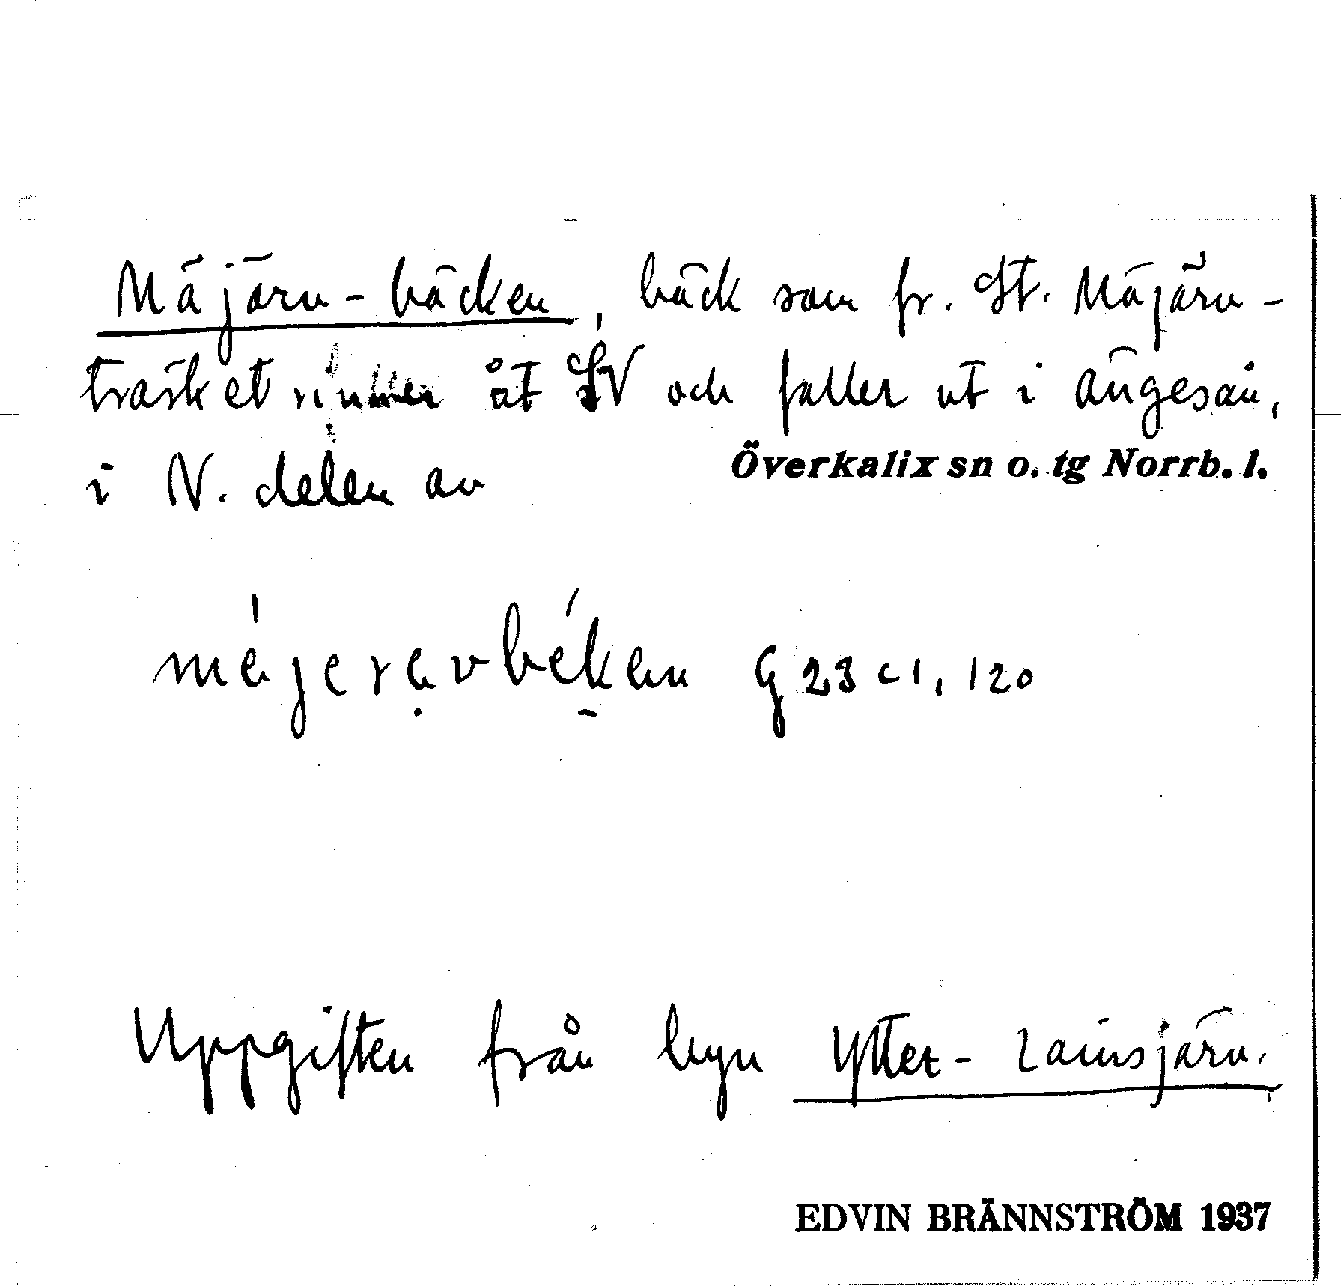 Mäjärv-bäcken, bäck som fr. St. Mäjärv-
träsket rinner åt SV och faller ut i Ängesån,
i N. delen av Överkalix sn o. tg Norrb. l.
G 23 c 1, 120
Uppgiften från byn Ytter-Lainsjärv.
EDVIN BRÄNNSTRÖM 1937